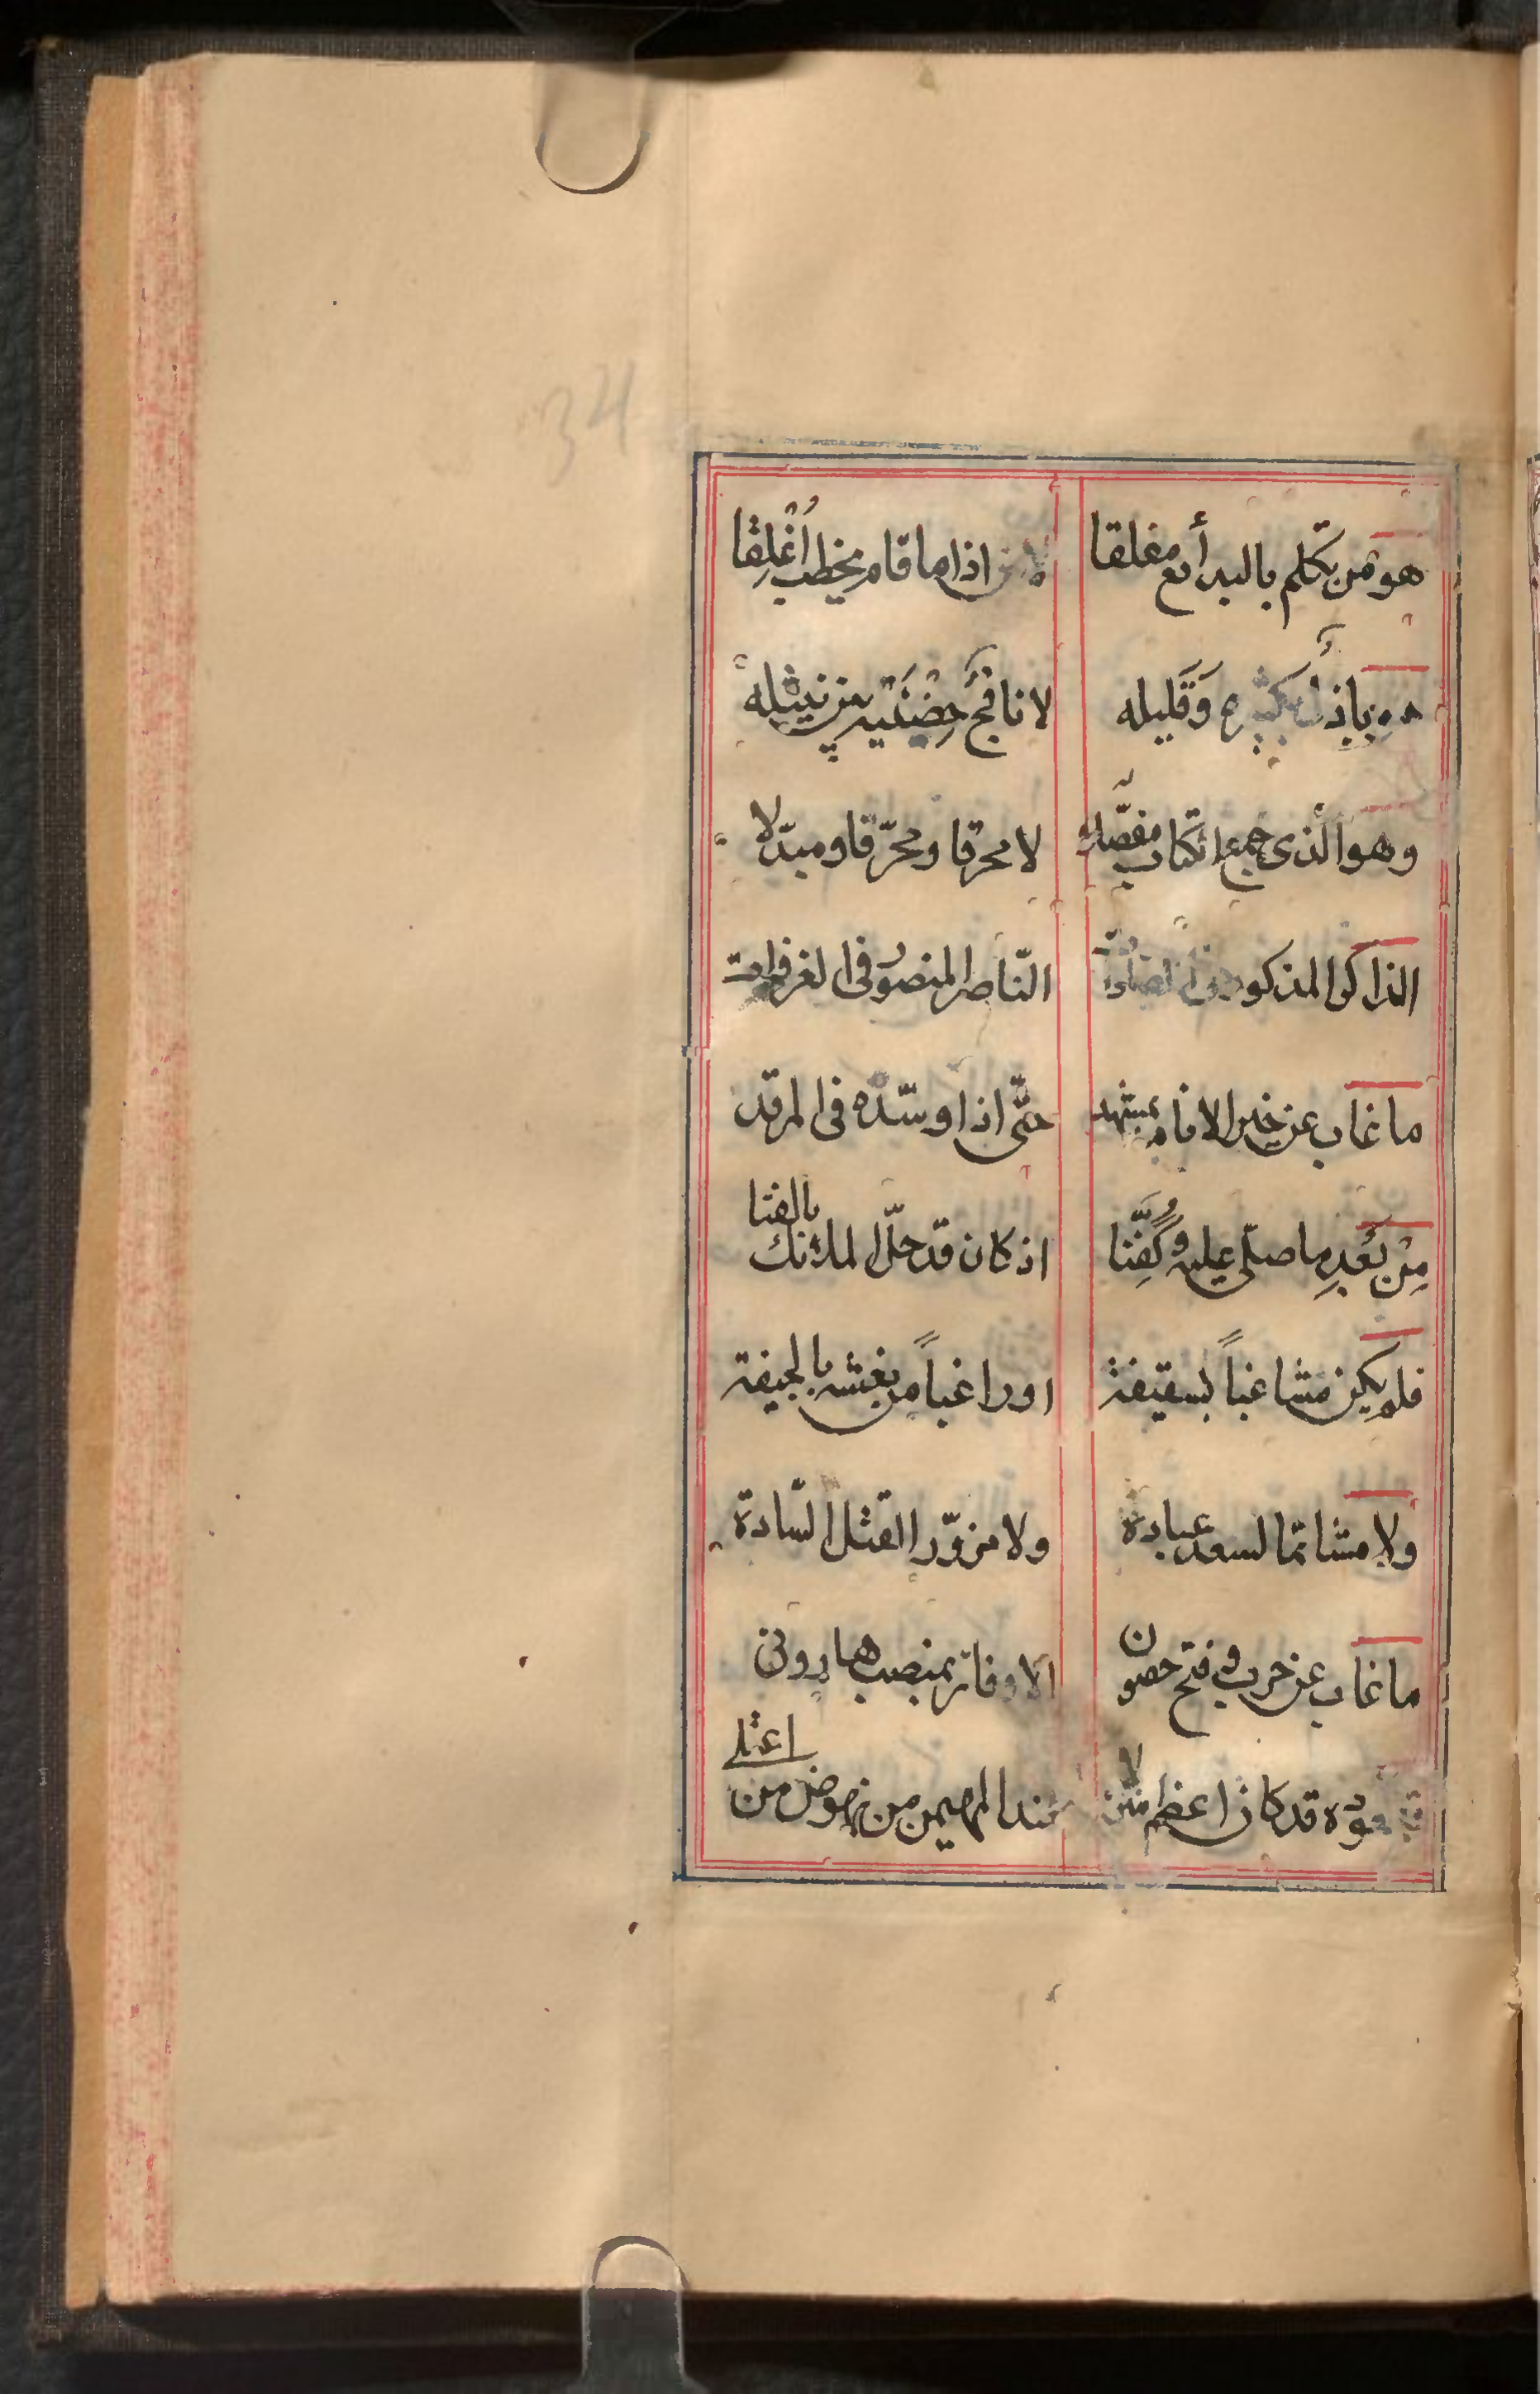 34
هو من تكلم بالبدائع مفلقا لا من اذا ما قام يخطب أُغْلِقا
باذل كثيره وَقَليله لا نافج حِضْنَيه من نثيله
وهو الذى جمع الكتاب مفصلا لا محرقا ومحرّفا ومبدّلا
الذاكر المذكور النّاصر المنصور فى الغزوات
ما غاب عن خير الانام بمشهد حتّى اذا وسّده فى المرقد
مِنْ بَعْدِ ما صلّى عليه وكُفِّنا اذ كان قد حلّ الملائك بالفنا
فلم يكن مشاغباً بسقيفة او راغباً من بغشه بالجيفة
ولا مشاتما لسعد عبادة ولا مزوّرا القتل السّادة
ما غاب عن حرب وفتح حصون الا وفاز بمنصب هارونى
قعوده قد كان اعظم منزلا عند المهيمن من نهوض من اعتلى